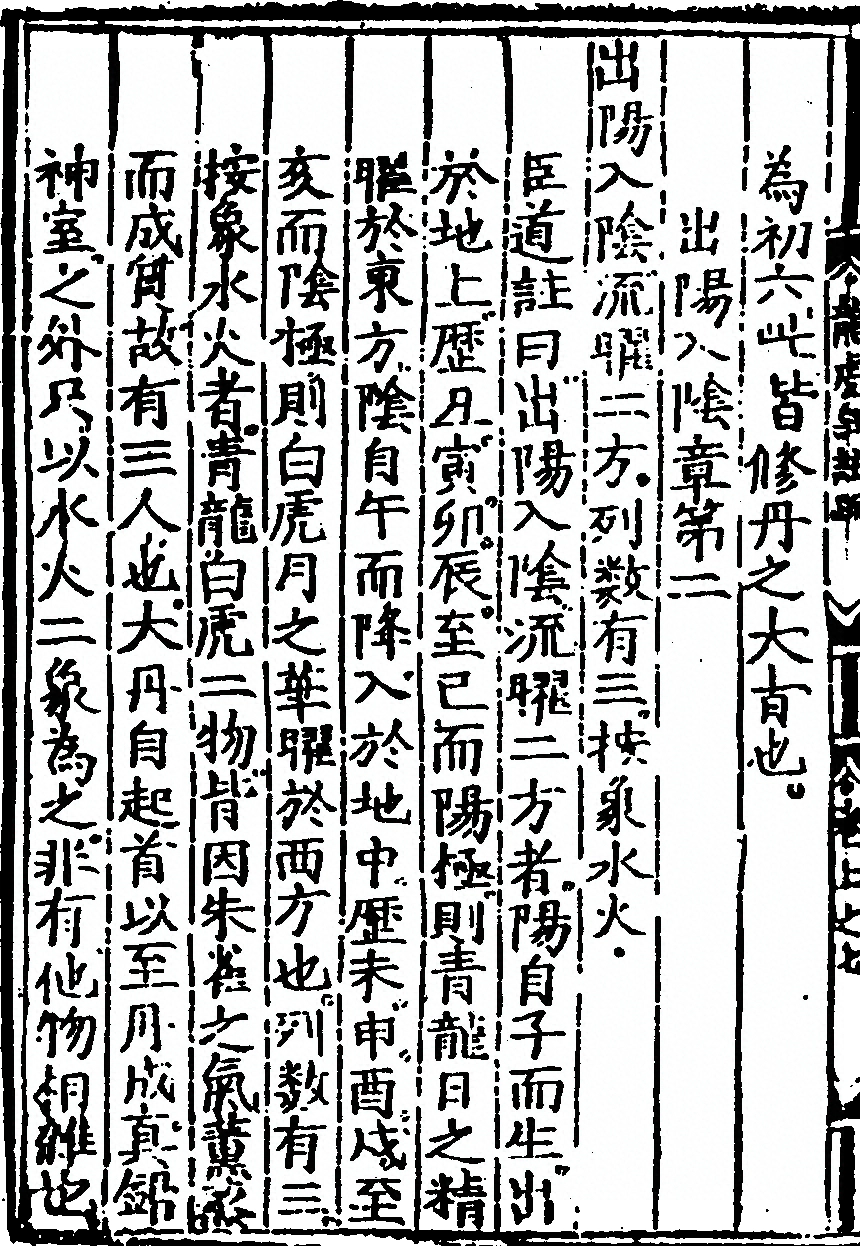 為初六此皆修丹之大旨也
出陽入陰章第二
出陽入陰流曜二方列数有三按象水火
臣道註曰出陽入陰流曜二方者陽自子而生出
於地上歴丑寅卯辰至巳而陽極則青龍日之精
曜於東方陰自午而降入於地中歴未申酉戌至
亥而陰極則白虎月之華曜於西方也列数有三
按象水火者青龍白虎二物皆因朱雀之氣薰蒸
而成質故有三人也大丹自起首以至丹成真鉛
神室之外只以水火二象為之非有他物相雜也